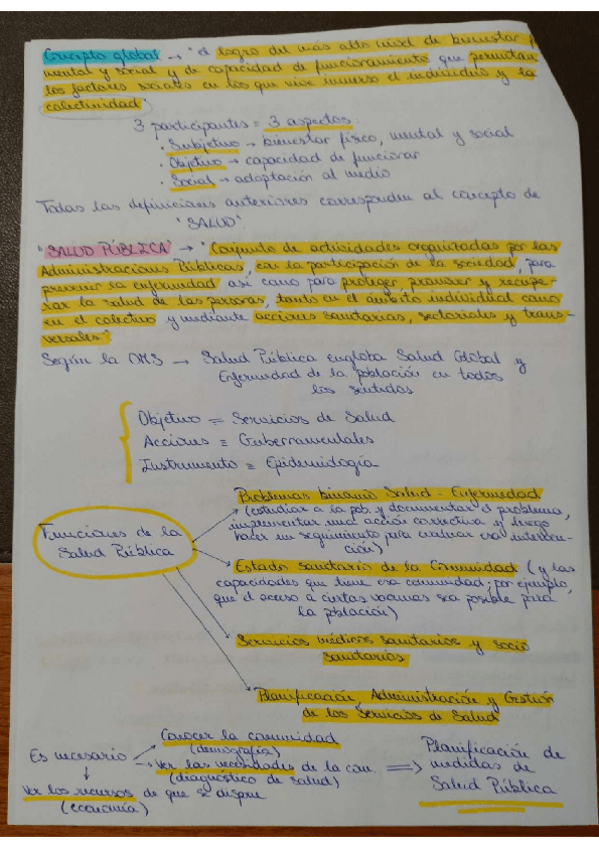 Concepto global → "el logro del más alto nivel de bienestar
mental y social y de capacidad de funcionamiento que permitan
los factores sociales en los que vive inmerso el individuo y la
colectividad"
3 participantes = 3 aspectos:
· Subjetivo → bienestar físico, mental y social
· Objetivo → capacidad de funcionar
· Social → adaptación al medio
Todas las definiciones anteriores corresponden al concepto de
"SALUD"
"SALUD PÚBLICA" → "Conjunto de actividades organizadas por las
Administraciones Públicas, con la participación de la sociedad, para
prevenir la enfermedad así como para proteger, promover y recupe-
rar la salud de las personas, tanto en el ámbito individual como
en el colectivo y mediante acciones sanitarias, sectoriales y trans-
versales"
Según la OMS → Salud Pública engloba Salud Global y
Enfermedad de la población en todos
los sentidos
Objetivo = Servicios de Salud
Acciones = Gubernamentales
Instrumento = Epidemiología
Funciones de la
Salud Pública
Problemas binomio Salud - Enfermedad
(estudiar a la pob. y documentar el problema,
implementar una acción correctiva y luego
hacer un seguimiento para evaluar esa interven-
ción)
Estado sanitario de la Comunidad (y las
capacidades que tiene esa comunidad; por ejemplo,
que el acceso a ciertas vacunas sea posible para
la población)
Servicios médicos sanitarios y socio
sanitarios
Planificación, Administración y Gestión
de los Servicios de Salud
Es necesario
Conocer la comunidad
(demografía)
Ver las necesidades de la com.
(diagnóstico de salud)
Ver los recursos de que se dispone
(economía)
⇒ Planificación de
medidas de
Salud Pública